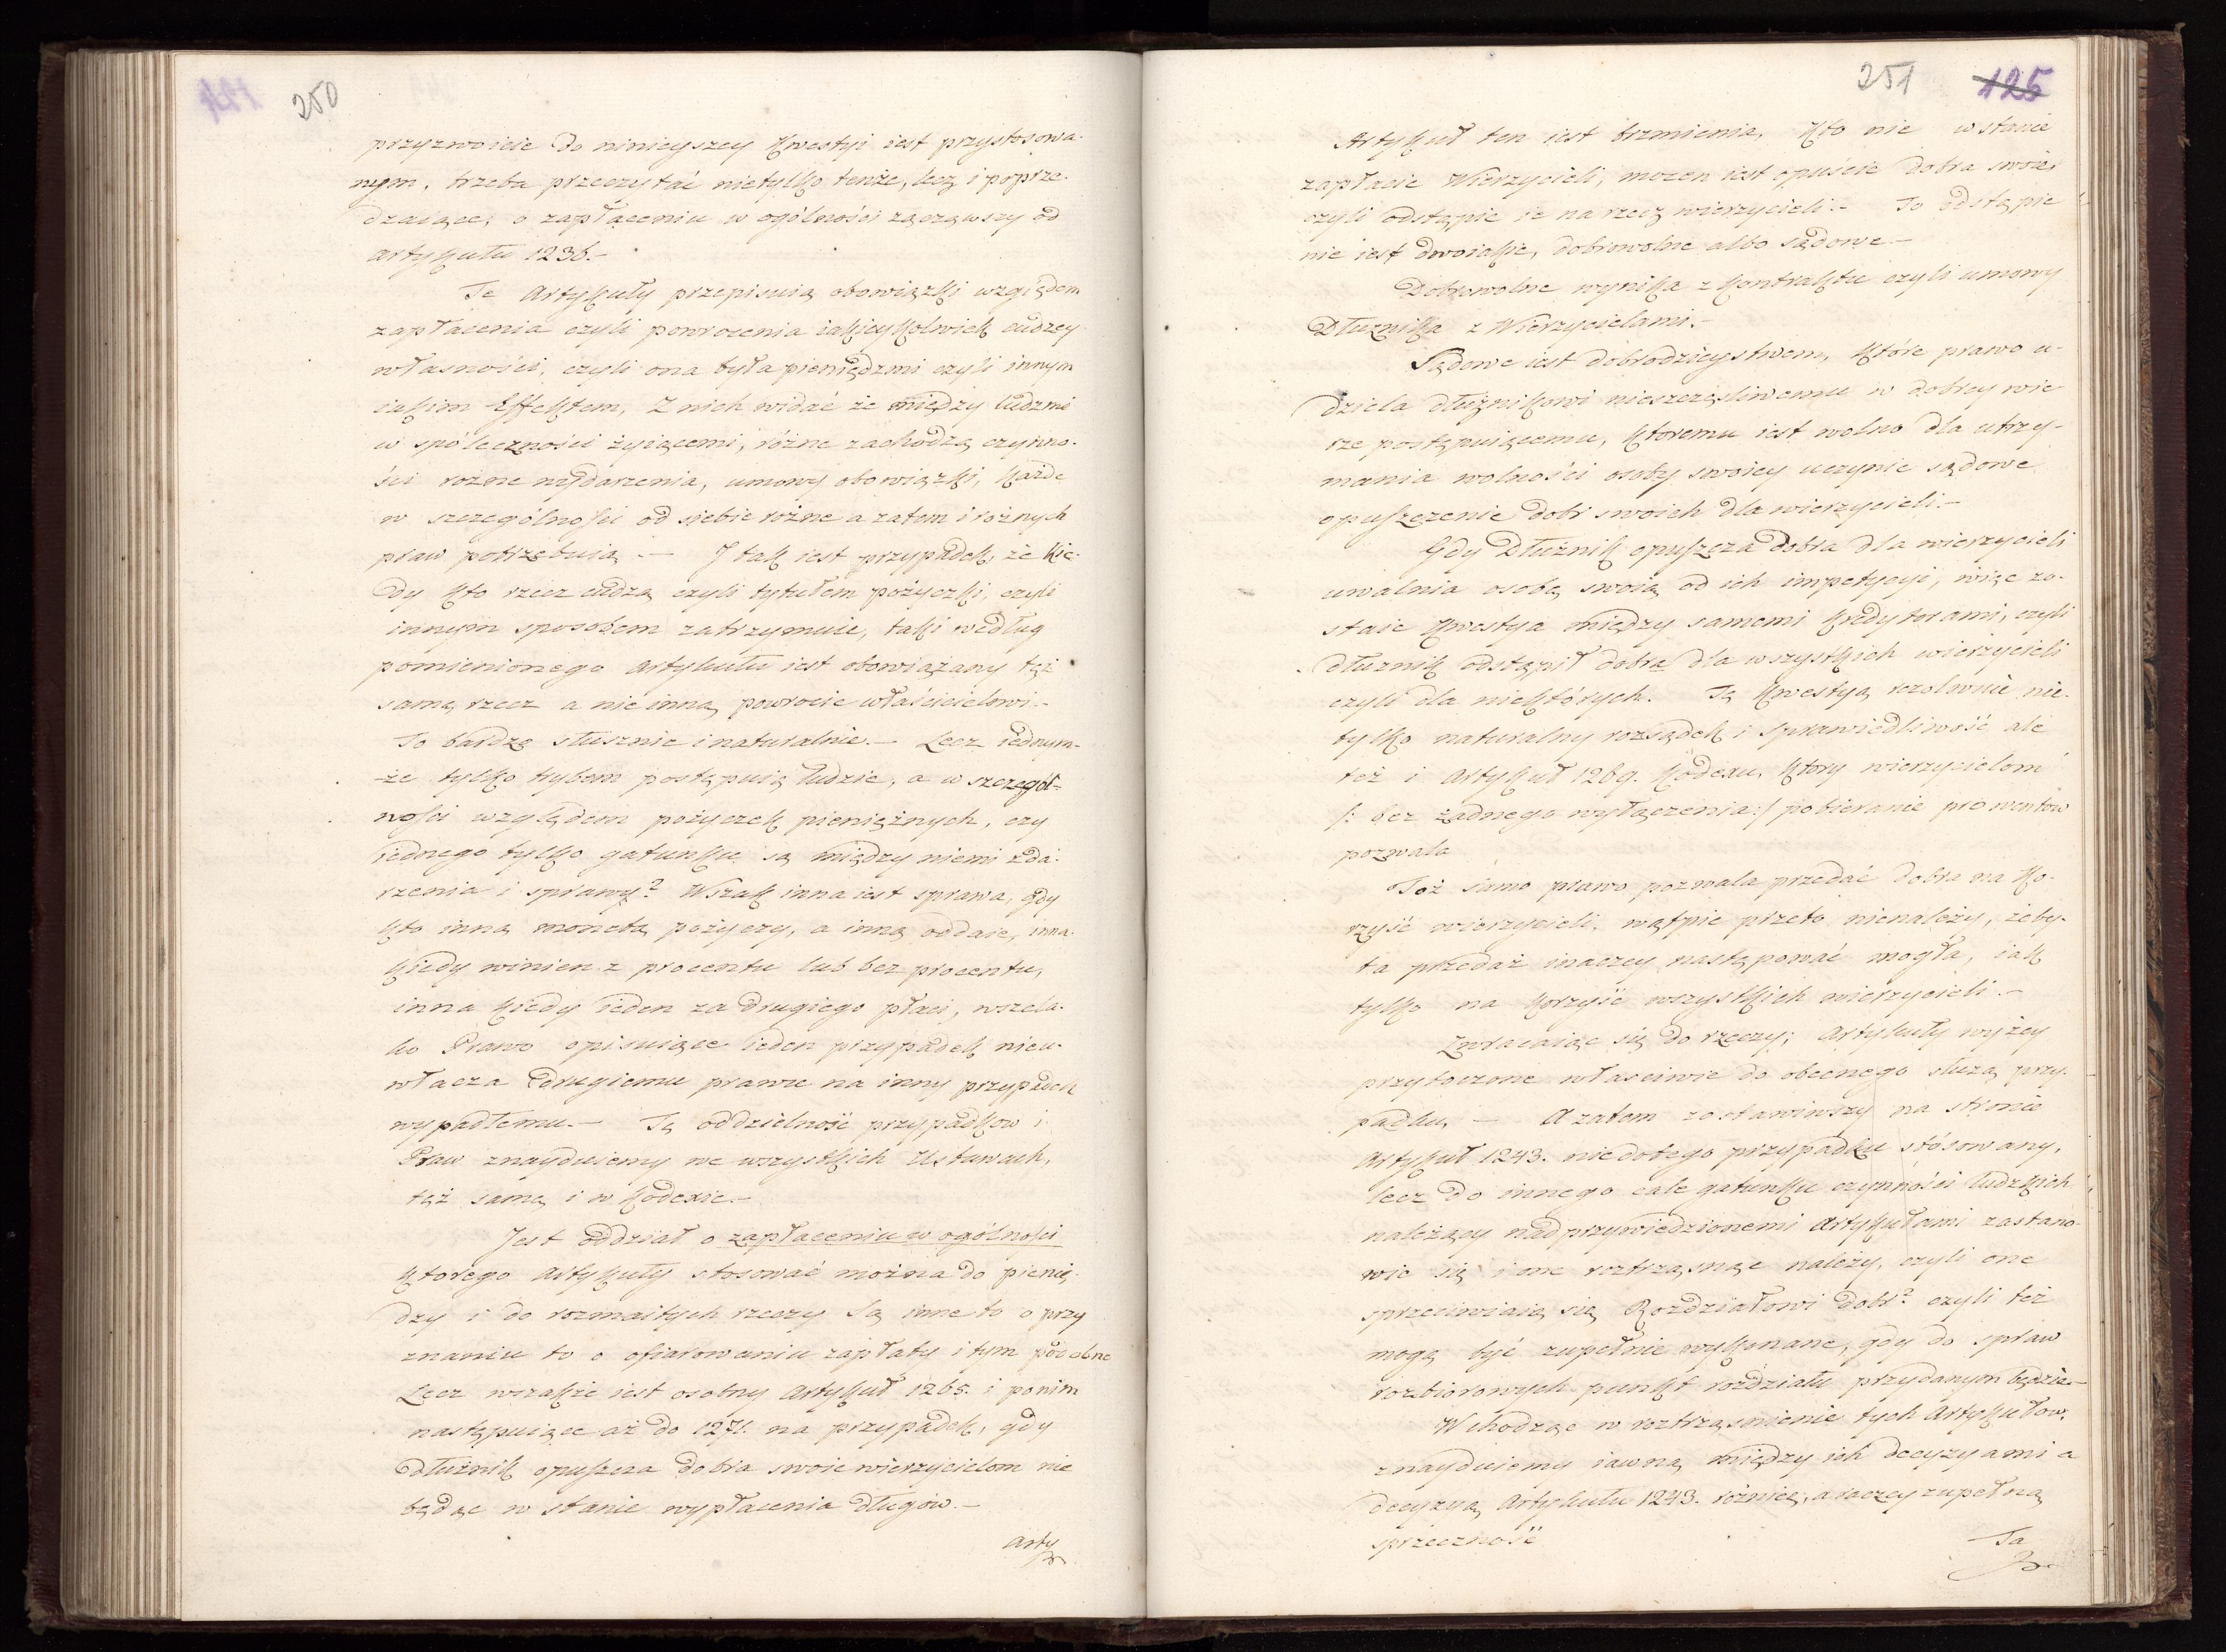 250
przyzwoicie do ninieyszey kwestyi iest przystosowa-
nym, trzeba przeczytać nietylko tenże, lecz i poprze-
dzaiące, o zapłaceniu w ogólności zacząwszy od
artykułu 1236.-
Te Artykuły przepisuią obowiązki względem
zapłacenia czyli powrocenia iakieykolwiek cudzey
własności, czyli ona była pieniędzmi czyli innym
iakim Effektem, Z nich widać że między ludzmi
w społeczności żyiącemi, różne zachodzą czynno-
ści rozne wydarzenia, umowy obowiązki, każde
w szczególności od siebie różne a zatem i różnych
praw potrzebuią.- I tak iest przypadek, że kie-
dy kto rzecz cudzą czyli tytułem pożyczki, czyli
innym sposobem zatrzymuie, taki według
pomienionego artykułu iest obowiązany też
samą rzecz a nie inną powrocic właścicielowi.-
To bardzo słusznie i naturalnie.- Lecz iednym-
-że tylko trybem postępuią ludzie, a w szczegól-
ności względem pożyczek pieniężnych, czy
iednego tylko gatunku są między niemi zda-
rzenia i sprawy? Wszak inna iest sprawa, gdy
kto inną monetą pożyczy, a inną oddaie, inna
kiedy winien z procentu lub bez procentu,
inna kiedy ieden za drugiego płaci, wszela-
ko Prawo opisuiące ieden przypadek nieu-
włacza drugiemu prawu na inny przypadek
wypadłemu.- Tę oddzielność przypadkow i
Praw znayduiemy we wszystkich Ustawach,
też samą i w Kodexie.-
Jest oddział o zapłaceniu w ogólności
ktorego Artykuły stosować można do pienię-
dzy i do rozmaitych rzeczy Są inne to o przy
znaniu to o ofiarowaniu zapłaty i tym podobne
Lecz wszakże iest osobny Artykuł 1265. i ponim
następuiące aż do 1271. na przypadek, gdy
dłużnik opuszcza dobra swoie wierzycielom nie
będąc w stanie wypłacenia długów.-
Arty
251
125
Artykuł ten iest brzmienia, Kto nie w stanie
zapłacic Wierzycieli, mozen iest opuścic dobra swoie,
czyli odstąpic ie na rzecz wierzycieli.- To odstąpie
nie iest dwoiakie, dobrowolne albo sądowe.-
Dobrowolne wynika z kontraktu czyli umowy
Dłuznika z Wierzycielami.-
Sądowe iest dobrodzieystwem, które prawo u-
dziela dłużnikowi nieszczęsliwemu w dobrey wie
rze postępuiącemu, ktoremu iest wolno dla utrzy-
mania wolności osoby swoiey uczynic sądowe
opuszczenie dobr swoich dla wierzycieli.-
Gdy Dłużnik opuszcza dobra dla wierzycieli
uwalnia osobę swoią od ich impetycyi, więc zo-
staie kwestya między samemi kredytorami, czyli
dłuznik odstąpił dobra dla wszystkich wierzycieli
czyli dla niektórych. Tą kwestyą rezolwuie nie-
tylko naturalny rozsądek i sprawiedliwość ale
też i Artykuł 1269. Kodexu, ktory wierzycielom
/: bez żadnego wyłączenia :/ pobieranie prowentow
pozwala
Toż samo prawo pozwala przedać dobra na ko-
rzyść wierzycieli, wątpic przeto nienależy, żeby-
ta przedaż inaczey następować mogła, iak
tylko na korzyść wszystkich wierzycieli.-
Zwracaiąc się do rzeczy; Artykuły wyżey
przytoczone własciwie do obecnego służą przy-
padku, - A zatem zostawiwszy na stronie
Artykuł 1243. niedotego przypadku stósowany,
lecz do innego cale gatunku czynności ludzkich
należący nad przywiedzionemi Artykułami zastano-
wic się i one roztrząsnąc należy, czyli one
sprzeciwiaią się Rozdziałowi dobr? czyli też
mogą być zupełnie wykonane, gdy do spraw
rozbiorowych punkt rozdziału przydanym będzie-
Wchodząc w roztrząsnienie tych Artykułow,
znayduiemy iawną między ich decyzyami a
decyzyą Artykułu 1243. różnicę, a raczey zupełną
sprzeczność
Ta